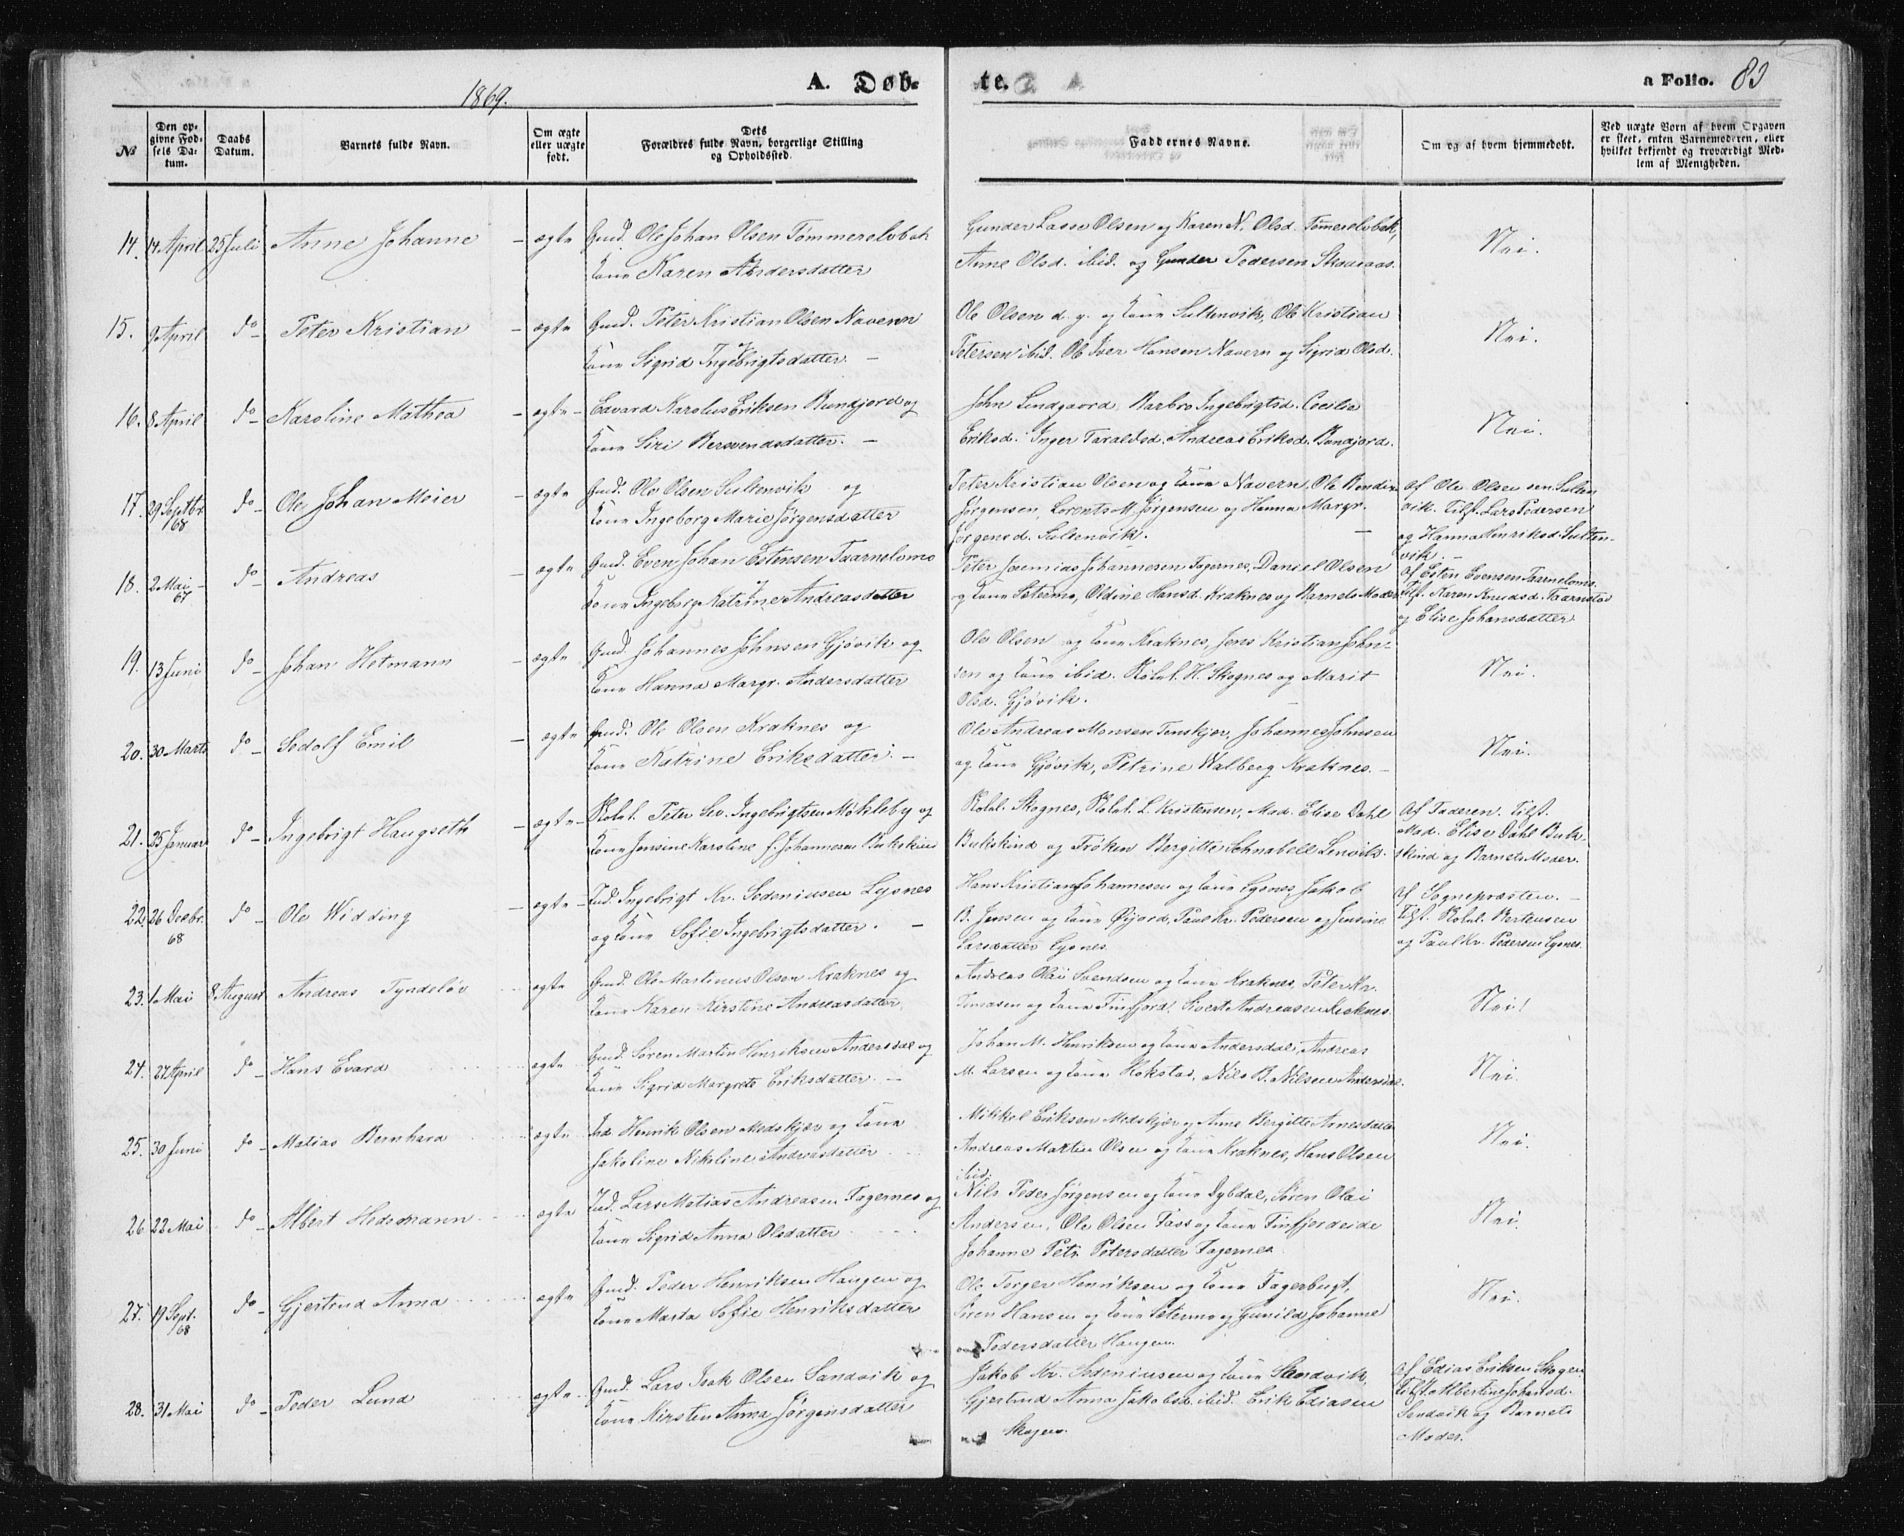 1869.
A. Døb-
te.
a Folio. 83
No
Den op-
givne Fød-
sels Da-
tum.
Daabs
Datum.
Barnets fulde Navn.
Om ægte
eller uægte
født.
Dets
Forældres fulde Navn, borgerlige Stilling
og Opholdssted.
Faddernes Navne.
Om og af hvem hjemmedøbt.
Ved uægte Børn af hvem Opgaven
er skeet, enten Barnemoderen, eller
hvilket bekjendt og troværdigt Med-
lem af Menigheden.
14. 14 April 25 Juli Anne Johanne – ægte
Gmd. Ole Johan Olsen Tømmerelvbak
Kone Karen Andersdatter
Gunder Lasse Olsen og Karen N. Olsd. Tømerelvbak,
Anne Olsd. ibid. og Gunder Pedersen Skauraas.
Nei.
15. 9 April do – Peter Kristian – ægte
Gmd. Peter Kristian Olsen Navern
Kone Sigrid Ingebrigtsdatter. –
Ole Olsen d. y. og Kone Sultenvik, Ole Kristian
Petersen ibid. Ole Iver Hansen Navern og Sigrid Olsd.
Nei.
16. 8 April do – Karoline Mathea – ægte –
Edvard Karolus Eriksen Bundjord og
Kone Siri Bersvendsdatter. –
John Lundgaard, Barbro Ingebrigtsd. Cecilie
Eriksd. Inger Taraldsd. Andreas Eriksd. Bundjord.
Nei.
17. 29 Septbr. 68 do – Ole Johan Meier – ægte
Gmd. Ole Olsen Sultenvik og
Kone Ingeborg Marie Jørgensdatter
Peter Kristian Olsen og Kone Navern, Ole Bendix
Jørgensen, Lorents M. Jørgensen og Hanna Margr.
Jørgensd. Sultenvik. –
Af Ole Olsen sen. Sulten
vik. Tilst. Lars Pedersen
og Hanna Henriksd. Sulten-
vik. –
18. 2 Mai – 67 do – Andreas – ægte
Gmd. Even Johan Estensen Taarnelvmo
Kone Ingeborg Katrine Andreasdatter
Peter Jeremias Johannesen Fagernes, Daniel Olsen
og Kone Setermo, Oldine Hansd. Kraknes og Barnets Moder
Af Esten Evensen Taarnelvmo.
Tilst. Karen Knudsd. Taarnelvd
og Elise Johansdatter
19. 13 Juni do – Johan Hetmann – ægte
Gmd. Johannes Johnsen Gjøvik og
Kone Hanna Margr. Andersdatter
Ole Olsen og Kone Kraknes, Jens Kristian John-
sen og Kone ibid. Kbbt. H. Skognes og Marit
Olsd. Gjøvik.
Nei.
20. 30 Marts do – Sedolf Emil – ægte –
Gmd. Ole Olsen Kraknes og
Kone Katrine Eriksdatter. –
Ole Andreas Monsen Tenskjer, Johannes Johnsen
og Kone Gjøvik, Petrine Walberg Kraknes. –
Nei.
21. 25 Januar do – Ingebrigt Haugseth – ægte –
Peter Ingebrigtsen Møkleby og
Kone Jensine Karoline f. Johannesen Bukskind
Skognes, L. Kristensen, Mad. Elise Dahl
Bukskind og Frøken Bergitte Schnabell Lenvik.
Af Faderen. Tilst.
Mad. Elise Dahl Buk-
skind og Barnets Moder.
22. 26 Decbr. 68 do – Ole Widding – ægte –
Ind. Ingebrigt Kr. Sedeniusen Lysnes
og Kone Sofie Ingebrigtsdatter. –
Hans Kristian Johannesen og Kone Lysnes, Jakob
B. Jensen og Kone Øijord, Paul Kr. Pedersen og Jensine
Larsdatter Lysnes.
Af Sognepræsten. –
Tilst. Bertensen
og Paul Kr. Pedersen Lysnes.
23. 1 Mai 8 August Andreas Tyndeløv ægte
Gmd. Ole Martinus Olsen Kraknes og
Kone Karen Kirstine Andreasdatter.
Andreas Olai Svendsen og Kone Kraknes, Peter Kr.
Tomasen og Kone Finfjord, Sivert Andreasen Leiknes.
Nei!
24. 27 April do – Hans Evard ægte
Gmd. Søren Martin Henriksen Andersdal og
Kone Sigrid Margrete Eriksdatter. –
Johan M. Henriksen og Kone Andersdal, Andreas
M. Larsen og Kone Hokstad, Nils B. Nilsen Andersdal.
Nei.
25. 30 Juni do – Matias Bernhard ægte
Ind. Henrik Olsen Medskjær og Kone
Jakoline Nikoline Andreasdatter
Mikkel Eriksen Medskjær og Anne Bergitte Arnesdatter
Andreas Martin Olsen og Kone Kraknes, Hans Olsen
ibid.
Nei.
26. 22 Mai do – Albert Hedemann ægte
Ind. Lars Matias Andreasen Fagernes og
Kone Sigrid Anna Olsdatter
Nils Peder Jørgensen og Kone Dybdal, Søren Olai
Andersen, Ole Olsen Tass og Kone Finfjordeide
Johanne Petr. Petersdatter Fagernes
Nei.
27. 19 Sept. 68 do – Gjertrud Anna ægte
Gmd. Peder Henriksen Haugen og
Kone Marta Sofie Henriksdatter
Ole Torger Henriksen og Kone Fagerbergt,
Søren Hansen og Kone Setermo og Gunild Johanne
Pedersdatter Haugen
Nei.
28. 31 Mai do – Peder Lund ægte
Gmd. Lars Isak Olsen Sandvik og
Kone Kirsten Anna Jørgensdatter
Jakob Kr. Sedeniusen og Kone Sandvik,
Gjertrud Anna Jakobsd. ibid. Erik Ediasen
Skogen.
Af Edias Eriksen Skogen
Tilst. Albertine Johansd.
Sandvik og Barnets
Moder.